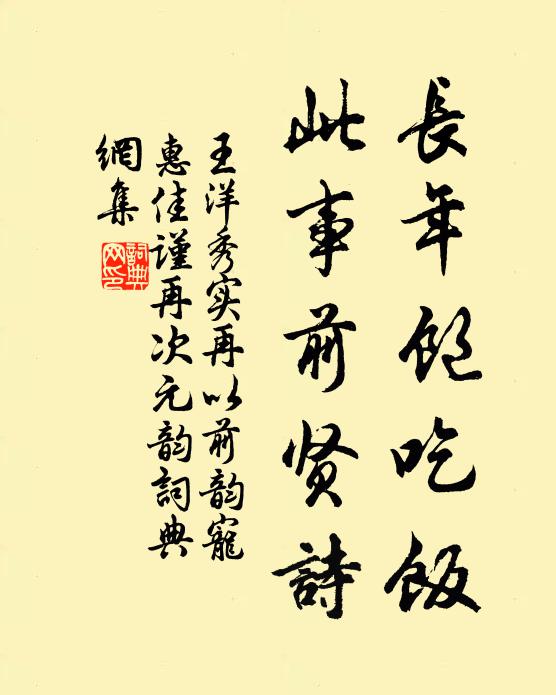 長年飽吃飯
此事前贤詩
王洋秀实再以前韵寵
惠佳謹再次元韵詞典
網集
詞典
网印